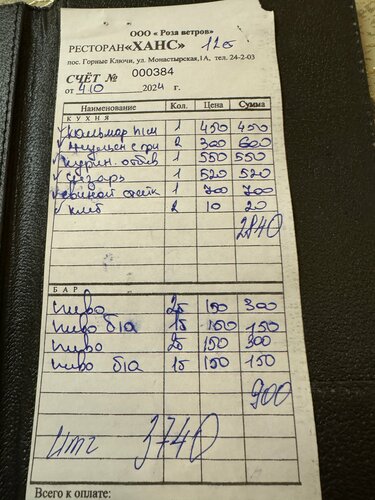 ООО « Роза ветров»
РЕСТОРАН«ХАНС» 12б
пос. Горные Ключи, ул. Монастырская,1А, тел. 24-2-03
СЧЁТ № 000384
от 4/10 2024 г.
Наименование Кол. Цена Сумма
КУХНЯ
кальмар 1 450 450
жульен с гри 2 300 600
курин. отбив 1 550 550
цезарь 1 520 520
свиной стейк 1 700 700
хлеб 2 10 20
2840
БАР
пиво 2б 150 300
пиво б/а 1б 150 150
пиво 2б 150 300
пиво б/а 1б 150 150
900
итг 3740
Всего к оплате: